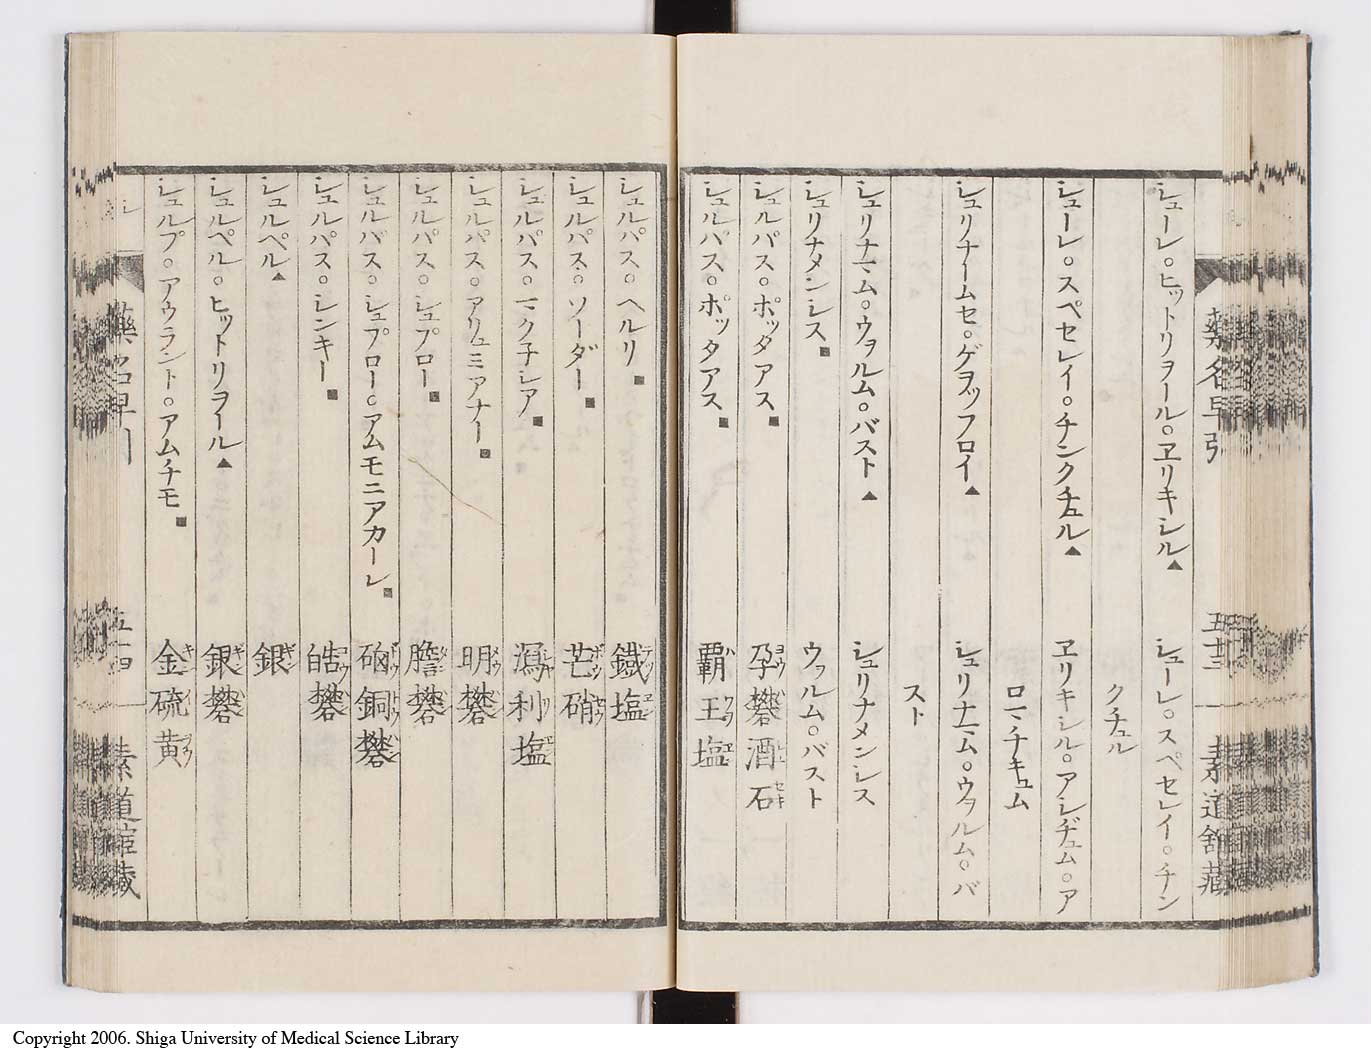 藥名早引
五十三
素道舘藏
シューレ。ヒットリヲール。ヱリキシル▲
シューレ。スペセレイ。チン
クチュル
シューレ。スペセレイ。チンクチュル▲
ヱリキシル。アシヂュム。ア
ロマチキュム
シュリナームセ。ゲヲッフロイ▲
シュリナーム。ウヮルム。バ
スト
シュリナーム。ウヮルム。バスト▲
シュリナメンシス
シュリナメンシス■
ウヮルム。バスト
シュルパス。ポッタアス■
孕礬酒石
シュルパス。ポッタアス■
覇王塩
シュルパス。ヘルリ■
鐵塩
シュルパス。ソーダー■
芒硝
シュルパス。マク子シア■
瀉利塩
シュルパス。アリュミアナー■
明礬
シュルパス。シュプロー■
膽礬
シュルパス。シュプロー。アムモニアカーレ■
硇銅礬
シュルパス。シンキー■
皓礬
シュルペル▲
銀
シュルペル。ヒットリヲール▲
銀礬
シュルプ。アウラント。アムチモ■
金硫黄
藥名早引
五十四
素道舘藏
Copyright 2006. Shiga University of Medical Science Library